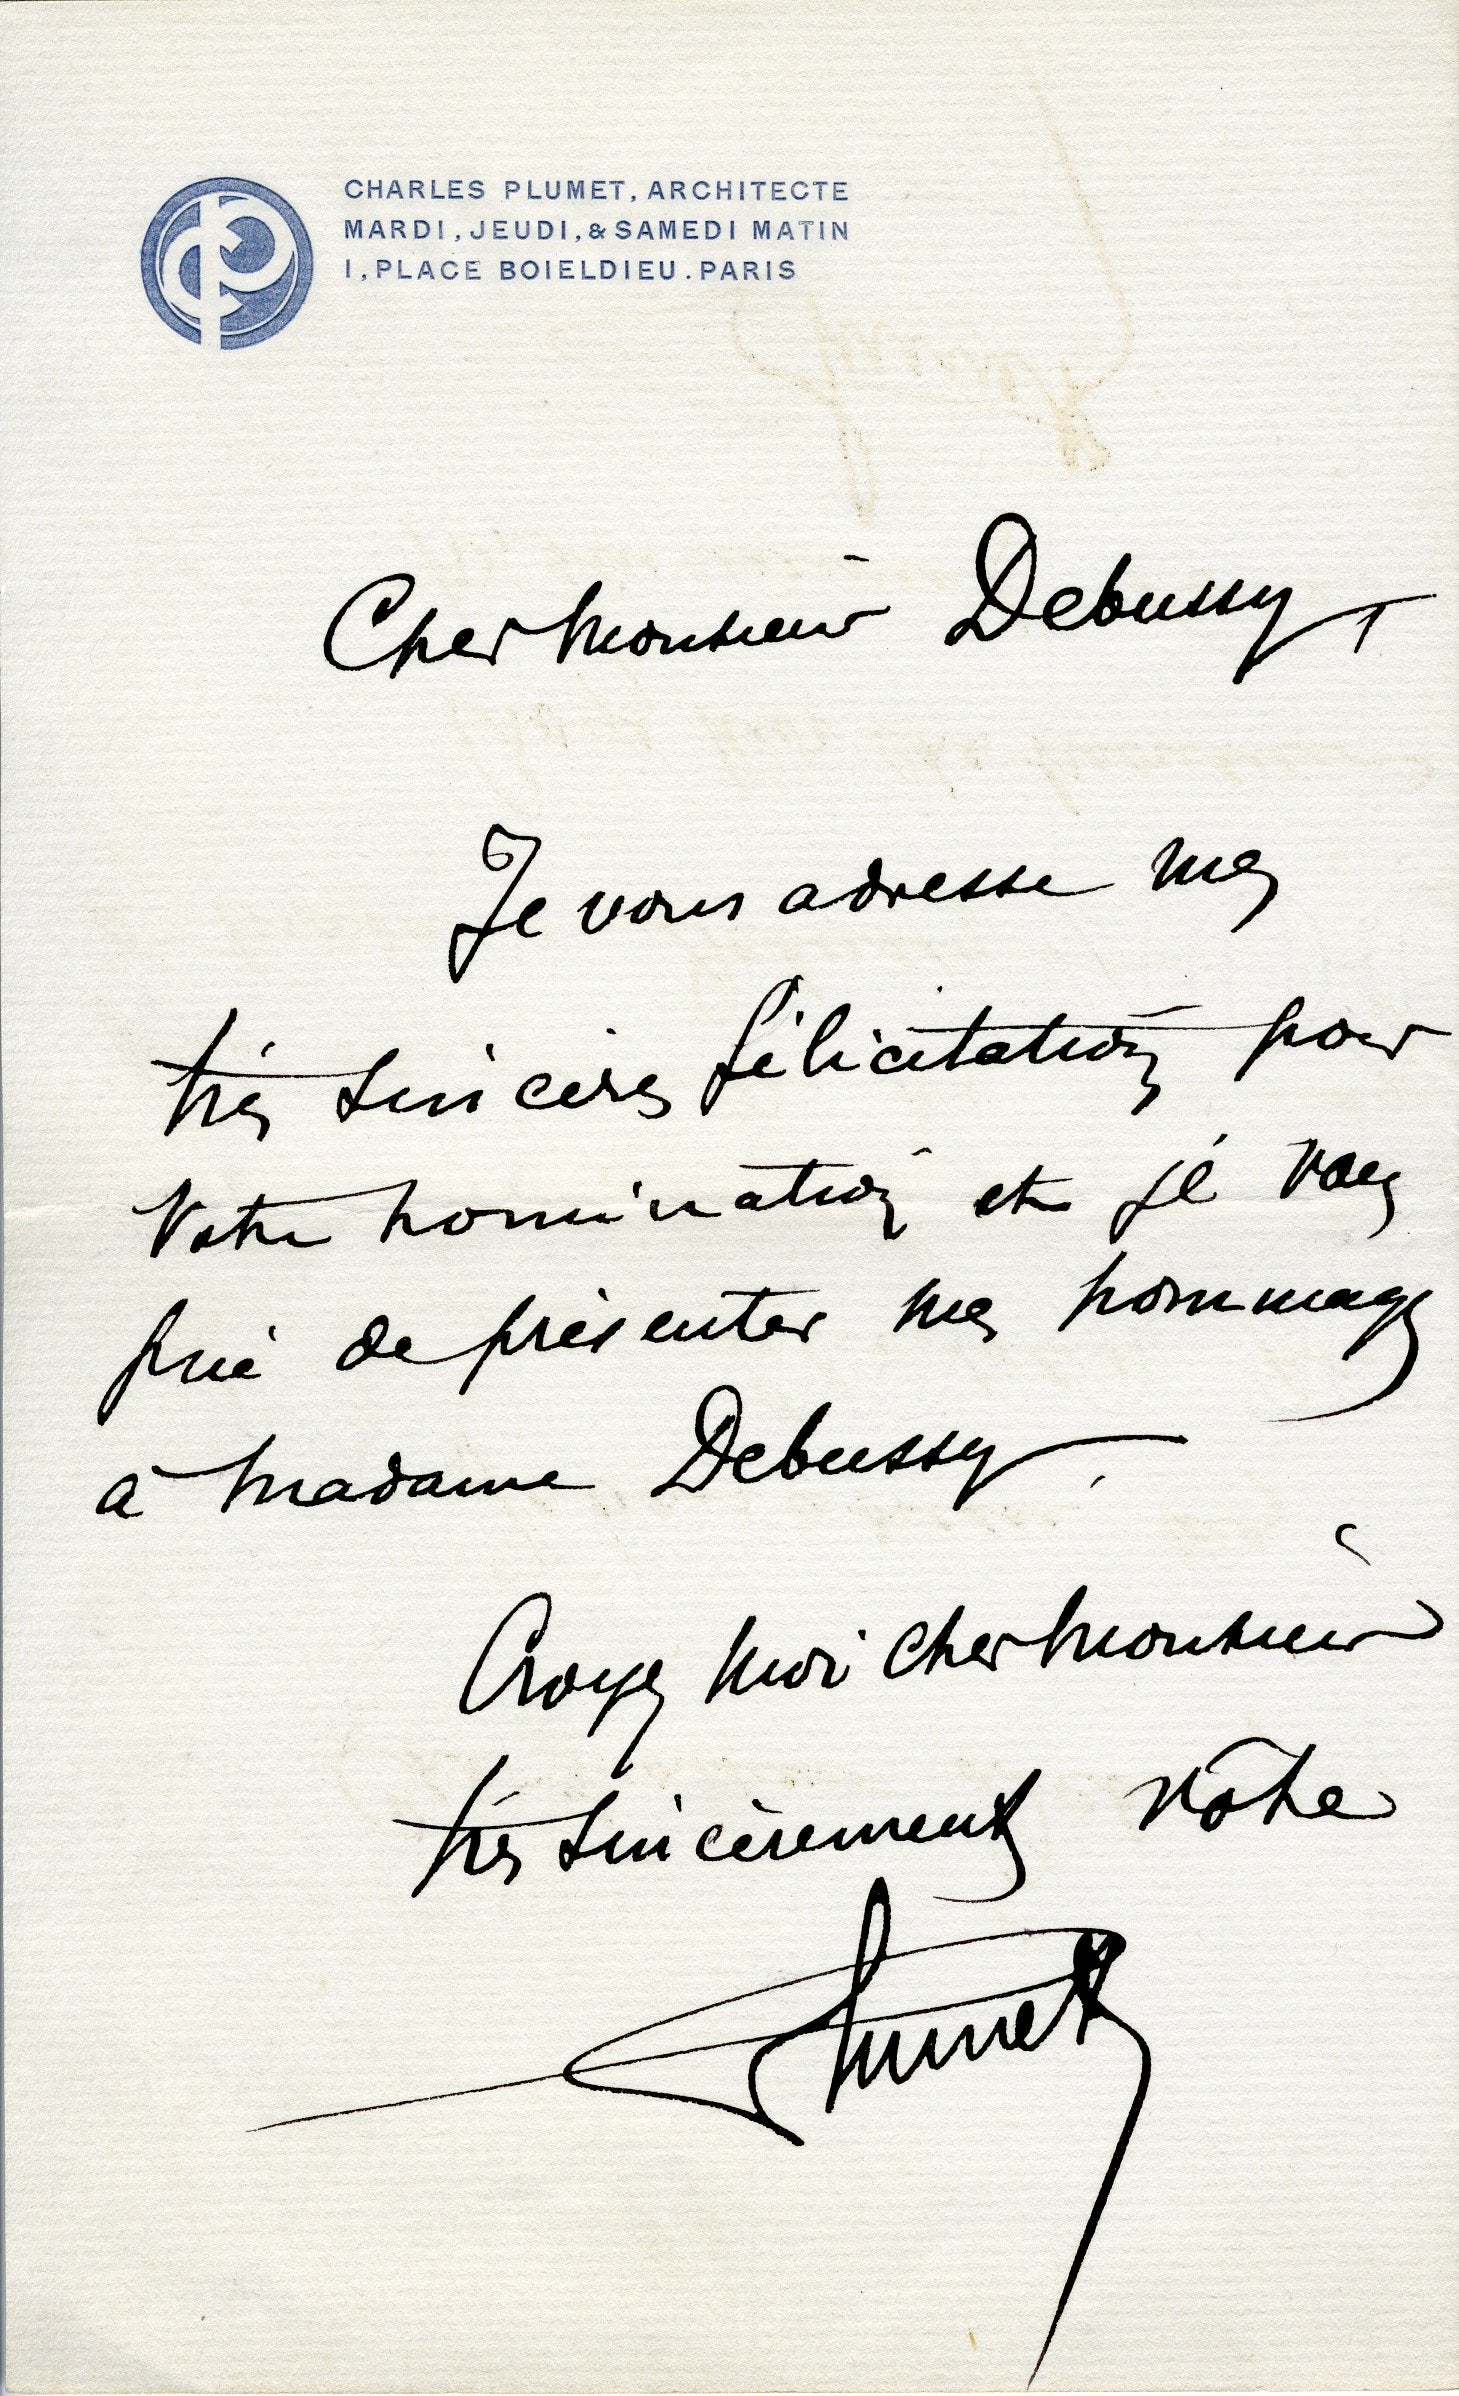 CHARLES PLUMET, ARCHITECTE
MARDI, JEUDI, & SAMEDI MATIN
1, PLACE BOIELDIEU. PARIS
Cher Monsieur Debussy,
Je vous adresse mes
très sincères félicitations pour
votre nomination et je vous
prie de présenter mes hommages
à Madame Debussy.
Croyez moi cher Monsieur
très sincèrement vôtre
Plumet